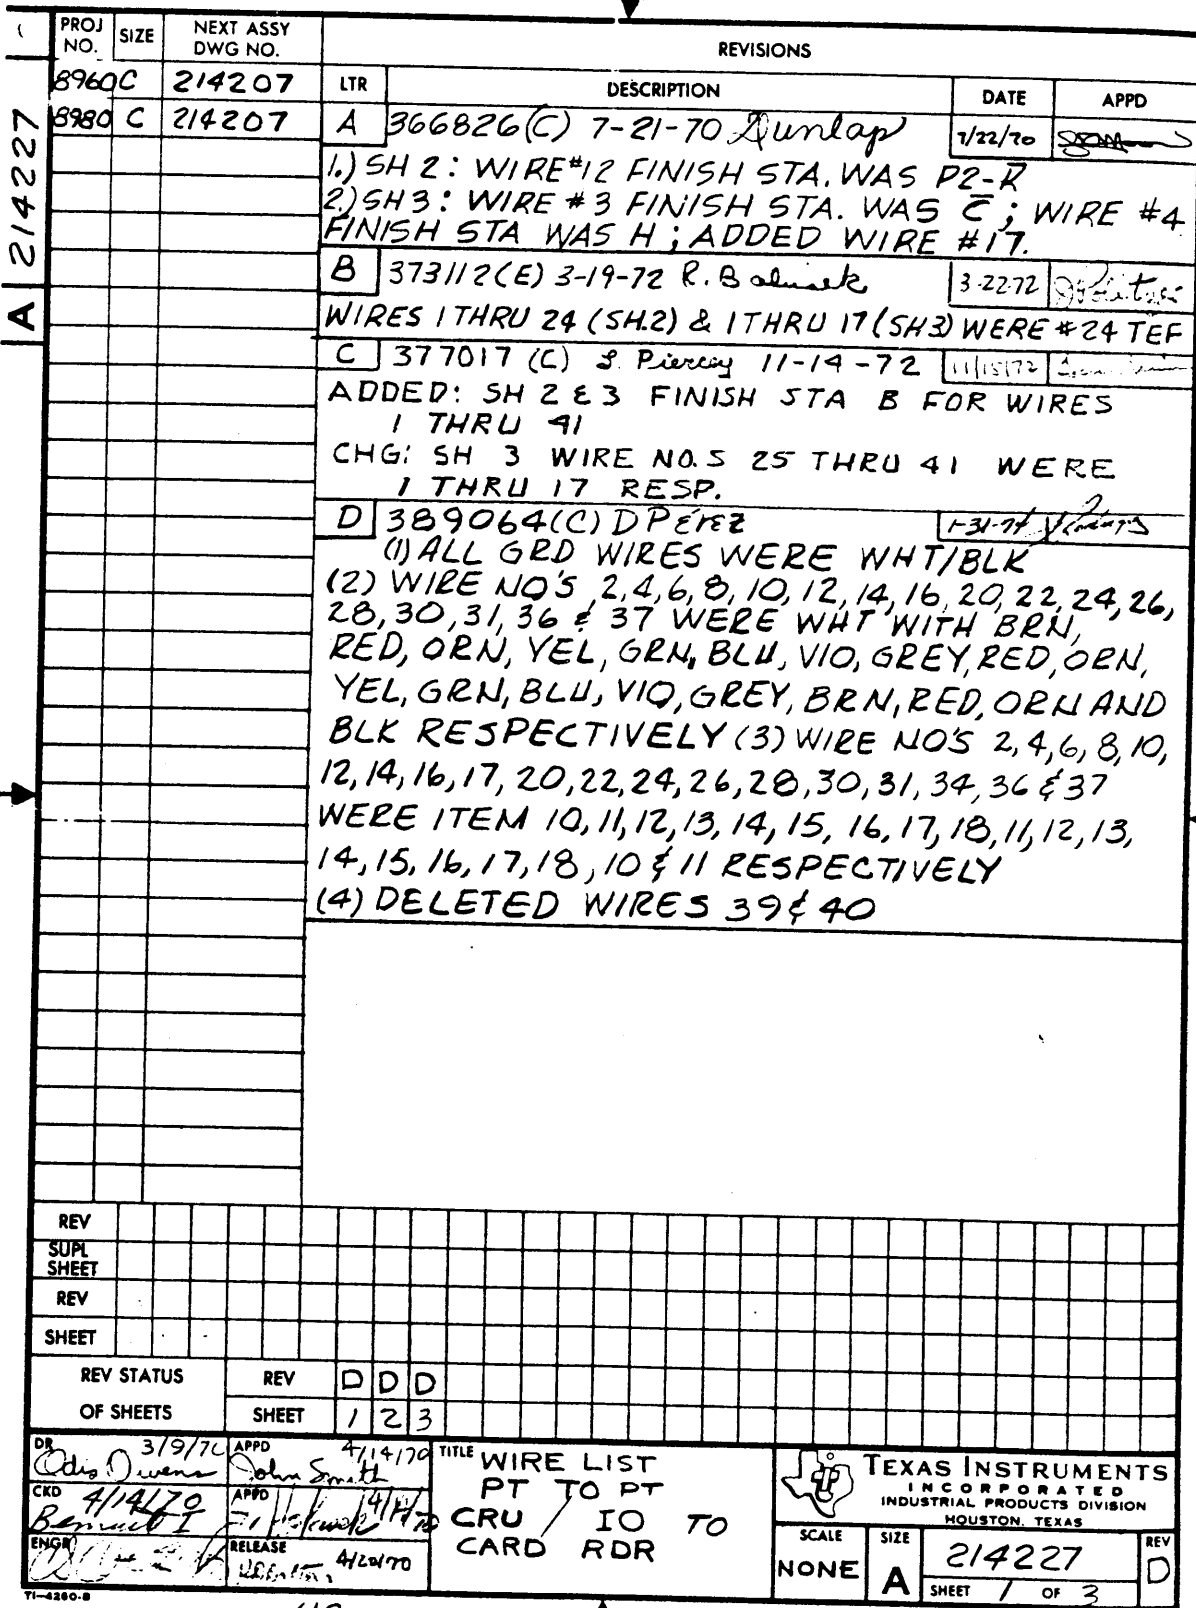 PROJ NO. SIZE NEXT ASSY DWG NO. REVISIONS
8960 C 214207 LTR DESCRIPTION DATE APPD
8980 C 214207 A 366826(C) 7-21-70 Dunlap 7/22/70
A 214227
1.) SH 2: WIRE#12 FINISH STA. WAS P2-R
2.) SH3: WIRE #3 FINISH STA. WAS C̅; WIRE #4
FINISH STA WAS H; ADDED WIRE #17.
B 373112(E) 3-19-72 R. 3-22-72
WIRES 1 THRU 24 (SH.2) & 1 THRU 17 (SH3) WERE #24 TEF
C 377017 (C) L. Piercey 11-14-72 11/15/72
ADDED: SH 2 & 3 FINISH STA B FOR WIRES
1 THRU 41
CHG: SH 3 WIRE NO.S 25 THRU 41 WERE
1 THRU 17 RESP.
D 389064(C) D Pérez 1-31-74
(1) ALL GRD WIRES WERE WHT/BLK
(2) WIRE NO'S 2,4,6,8,10,12,14,16,20,22,24,26,
28,30,31,36 & 37 WERE WHT WITH BRN,
RED, ORN, YEL, GRN, BLU, VIO, GREY, RED, ORN,
YEL, GRN, BLU, VIO, GREY, BRN, RED, ORN AND
BLK RESPECTIVELY (3) WIRE NO'S 2,4,6,8,10,
12,14,16,17,20,22,24,26,28,30,31,34,36 & 37
WERE ITEM 10,11,12,13,14,15,16,17,18,11,12,13,
14,15,16,17,18,10 & 11 RESPECTIVELY
(4) DELETED WIRES 39 & 40
REV
SUPL SHEET
REV
SHEET
REV STATUS OF SHEETS
REV D D D
SHEET 1 2 3
DR Odis Owens 3/9/70 APPD John Smith 4/14/70
CKD 4/14/70 Bennett I APPD
ENGR RELEASE 4/20/70
TITLE WIRE LIST
PT TO PT
CRU / IO TO
CARD RDR
TEXAS INSTRUMENTS
INCORPORATED
INDUSTRIAL PRODUCTS DIVISION
HOUSTON, TEXAS
SCALE NONE SIZE A 214227 REV D
SHEET 1 OF 3
TI-4260-B